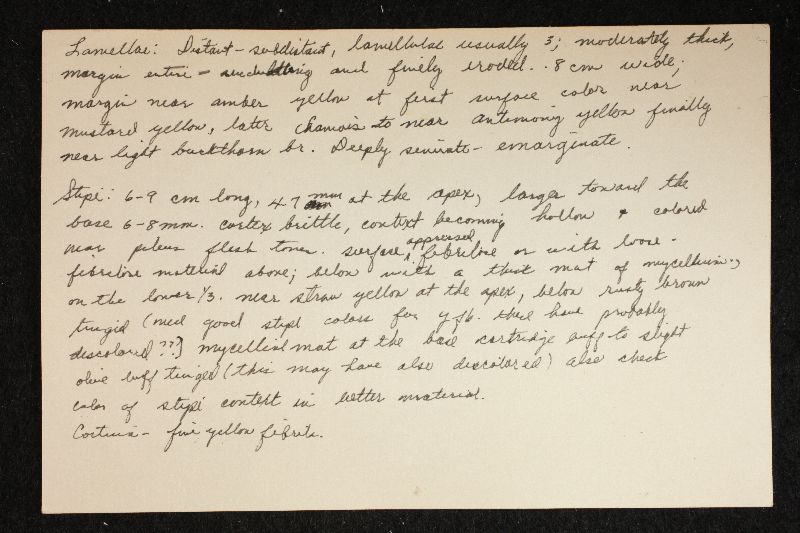 Lamellae: Distant - subdistant, lamellulae usually 3; moderately thick,
margin entire - undulating and finely eroded. .8 cm wide;
margin near amber yellow at first surface color near
mustard yellow, later chamois to near antimony yellow finally
near light buckthorn br. Deeply sinuate - emarginate.
Stipe: 6-9 cm long, 4-7 mm at the apex, larger toward the
base 6-8 mm. cortex brittle, context becoming hollow & colored
near pileus flesh tones. surface appressed fibrilose or with loose-
fibrilose material above; below with a thick mat of mycelium,
on the lower 1/3. near straw yellow at the apex, below rusty brown
tinged (need good stipe colors for yfb. these have probably
discolored??) mycellial mat at the base cartridge buff to slight
olive buff tinged (this may have also discolored) also check
color of stipe context in better material.
Cortina - fine yellow fibrils.